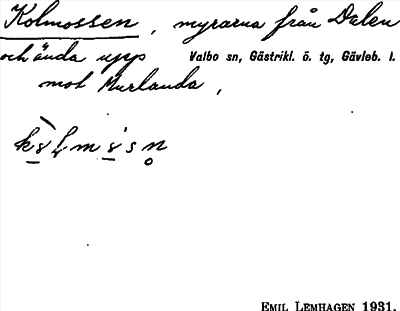 Kolmossen, myrarna från Dalen
och ända upp Valbo sn, Gästrikl. ö. tg, Gävleb. l.
mot Murlanda,
EMIL LEMHAGEN 1931.